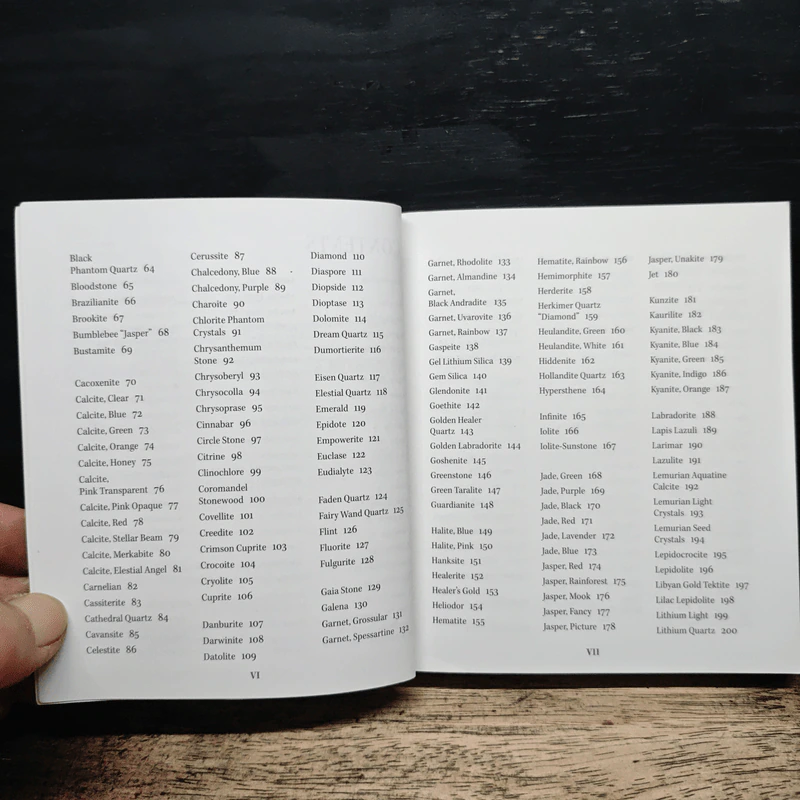 Black
Phantom Quartz 64
Bloodstone 65
Brazilianite 66
Brookite 67
Bumblebee "Jasper" 68
Bustamite 69
Cacoxenite 70
Calcite, Clear 71
Calcite, Blue 72
Calcite, Green 73
Calcite, Orange 74
Calcite, Honey 75
Calcite,
Pink Transparent 76
Calcite, Pink Opaque 77
Calcite, Red 78
Calcite, Stellar Beam 79
Calcite, Merkabite 80
Calcite, Elestial Angel 81
Carnelian 82
Cassiterite 83
Cathedral Quartz 84
Cavansite 85
Celestite 86
Cerussite 87
Chalcedony, Blue 88
Chalcedony, Purple 89
Charoite 90
Chlorite Phantom
Crystals 91
Chrysanthemum
Stone 92
Chrysoberyl 93
Chrysocolla 94
Chrysoprase 95
Cinnabar 96
Circle Stone 97
Citrine 98
Clinochlore 99
Coromandel
Stonewood 100
Covellite 101
Creedite 102
Crimson Cuprite 103
Crocoite 104
Cryolite 105
Cuprite 106
Danburite 107
Darwinite 108
Datolite 109
Diamond 110
Diaspore 111
Diopside 112
Dioptase 113
Dolomite 114
Dream Quartz 115
Dumortierite 116
Eisen Quartz 117
Elestial Quartz 118
Emerald 119
Epidote 120
Empowerite 121
Euclase 122
Eudialyte 123
Faden Quartz 124
Fairy Wand Quartz 125
Flint 126
Fluorite 127
Fulgurite 128
Gaia Stone 129
Galena 130
Garnet, Grossular 131
Garnet, Spessartine 132
VI
Garnet, Rhodolite 133
Garnet, Almandine 134
Garnet,
Black Andradite 135
Garnet, Uvarovite 136
Garnet, Rainbow 137
Gaspeite 138
Gel Lithium Silica 139
Gem Silica 140
Glendonite 141
Goethite 142
Golden Healer
Quartz 143
Golden Labradorite 144
Goshenite 145
Greenstone 146
Green Taralite 147
Guardianite 148
Halite, Blue 149
Halite, Pink 150
Hanksite 151
Healerite 152
Healer's Gold 153
Heliodor 154
Hematite 155
Hematite, Rainbow 156
Hemimorphite 157
Herderite 158
Herkimer Quartz
"Diamond" 159
Heulandite, Green 160
Heulandite, White 161
Hiddenite 162
Hollandite Quartz 163
Hypersthene 164
Infinite 165
Iolite 166
Iolite-Sunstone 167
Jade, Green 168
Jade, Purple 169
Jade, Black 170
Jade, Red 171
Jade, Lavender 172
Jade, Blue 173
Jasper, Red 174
Jasper, Rainforest 175
Jasper, Mook 176
Jasper, Fancy 177
Jasper, Picture 178
Jasper, Unakite 179
Jet 180
Kunzite 181
Kaurilite 182
Kyanite, Black 183
Kyanite, Blue 184
Kyanite, Green 185
Kyanite, Indigo 186
Kyanite, Orange 187
Labradorite 188
Lapis Lazuli 189
Larimar 190
Lazulite 191
Lemurian Aquatine
Calcite 192
Lemurian Light
Crystals 193
Lemurian Seed
Crystals 194
Lepidocrocite 195
Lepidolite 196
Libyan Gold Tektite 197
Lilac Lepidolite 198
Lithium Light 199
Lithium Quartz 200
VII